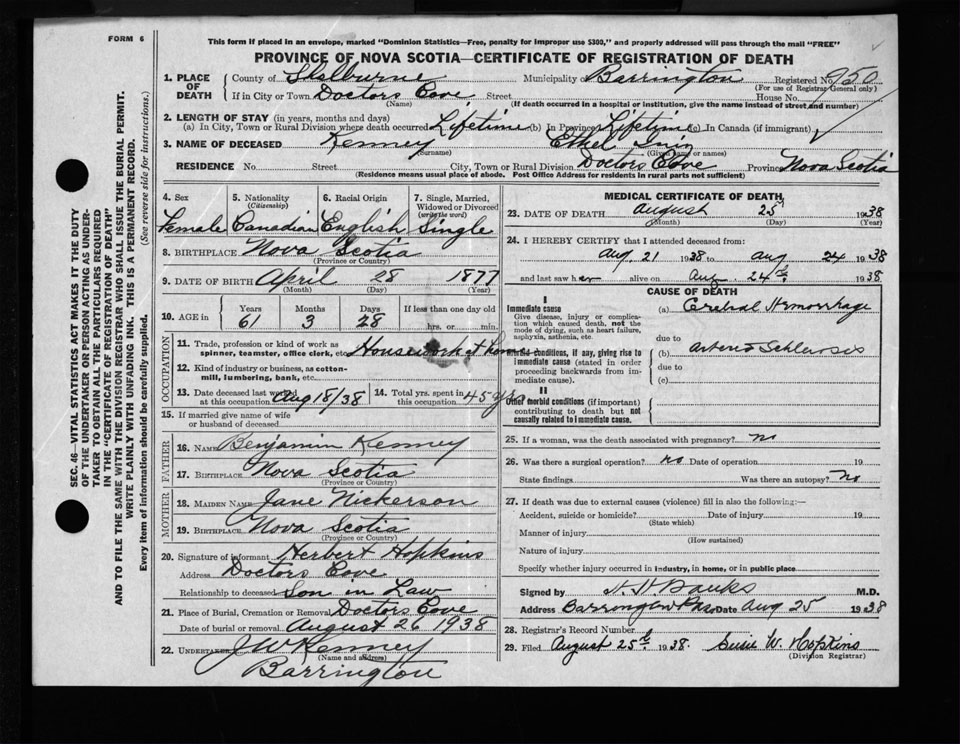 FORM 6
This form if placed in an envelope, marked "Dominion Statistics—Free, penalty for improper use $300," and properly addressed will pass through the mail "FREE"
PROVINCE OF NOVA SCOTIA—CERTIFICATE OF REGISTRATION OF DEATH
1. PLACE OF DEATH
County of Shelburne Municipality of Barrington Registered No. 950
(For use of Registrar General only)
If in City or Town Doctors Cove Street House No.
(Name) (If death occurred in a hospital or institution, give the name instead of street and number)
2. LENGTH OF STAY (in years, months and days)
(a) In City, Town or Rural Division where death occurred Lifetime (b) In Province Lifetime (c) In Canada (if immigrant) ✓
3. NAME OF DECEASED Kenney Ethel
(Surname) (Given name or names)
RESIDENCE No. Street City, Town or Rural Division Doctors Cove Province Nova Scotia
(Residence means usual place of abode. Post Office Address for residents in rural parts not sufficient)
SEC. 46—VITAL STATISTICS ACT MAKES IT THE DUTY
OF THE UNDERTAKER OR PERSON ACTING AS UNDER-
TAKER TO OBTAIN ALL THE PARTICULARS REQUIRED
IN THE "CERTIFICATE OF REGISTRATION OF DEATH"
AND TO FILE THE SAME WITH THE DIVISION REGISTRAR WHO SHALL ISSUE THE BURIAL PERMIT.
WRITE PLAINLY WITH UNFADING INK. THIS IS A PERMANENT RECORD.
Every item of information should be carefully supplied. (See reverse side for instructions.)
4. Sex 5. Nationality (Citizenship) 6. Racial Origin 7. Single, Married, Widowed or Divorced (write the word)
Female Canadian English Single
8. BIRTHPLACE Nova Scotia
(Province or Country)
9. DATE OF BIRTH April 28 1877
(Month) (Day) (Year)
10. AGE in Years Months Days If less than one day old
61 3 28 hrs. or min.
OCCUPATION
11. Trade, profession or kind of work as
spinner, teamster, office clerk, etc. Housework at home
12. Kind of industry or business, as cotton-
mill, lumbering, bank, etc.
13. Date deceased last worked at this occupation Aug 18/38 14. Total yrs. spent in this occupation 45 yrs
15. If married give name of wife
or husband of deceased
FATHER
16. NAME Benjamin Kenney
17. BIRTHPLACE Nova Scotia
(Province or Country)
MOTHER
18. MAIDEN NAME Jane Nickerson
19. BIRTHPLACE Nova Scotia
(Province or Country)
20. Signature of informant Herbert Hopkins
Address Doctors Cove
Relationship to deceased Son in Law
21. Place of Burial, Cremation or Removal Doctors Cove
Date of burial or removal August 26 1938
22. Undertaker J W Kenney
(Name and address)
Barrington
MEDICAL CERTIFICATE OF DEATH
23. DATE OF DEATH August 25th 1938
(Month) (Day) (Year)
24. I HEREBY CERTIFY that I attended deceased from:
Aug 21 1938 to Aug 24 1938
and last saw her alive on Aug 24th 1938
CAUSE OF DEATH
I
Immediate cause
Give disease, injury or complica-
tion which caused death, not the
mode of dying, such as heart failure,
asphyxia, asthenia, etc.
(a) Crebral Hemorrhage
due to
Morbid conditions, if any, giving rise to
immediate cause (stated in order
proceeding backwards from im-
mediate cause).
(b) arterio Schlerosis
due to
(c)
II
Other morbid conditions (if important)
contributing to death but not
causally related to immediate cause.
25. If a woman, was the death associated with pregnancy? no
26. Was there a surgical operation? no Date of operation 19
State findings Was there an autopsy? no
27. If death was due to external causes (violence) fill in also the following:—
Accident, suicide or homicide? Date of injury 19
(State which)
Manner of injury
(How sustained)
Nature of injury
Specify whether injury occurred in industry, in home, or in public place
Signed by H. H. Banks M.D.
Address Barrington Pass Date Aug 25 1938
28. Registrar's Record Number
29. Filed August 25th 1938. Susie W. Hopkins
(Division Registrar)